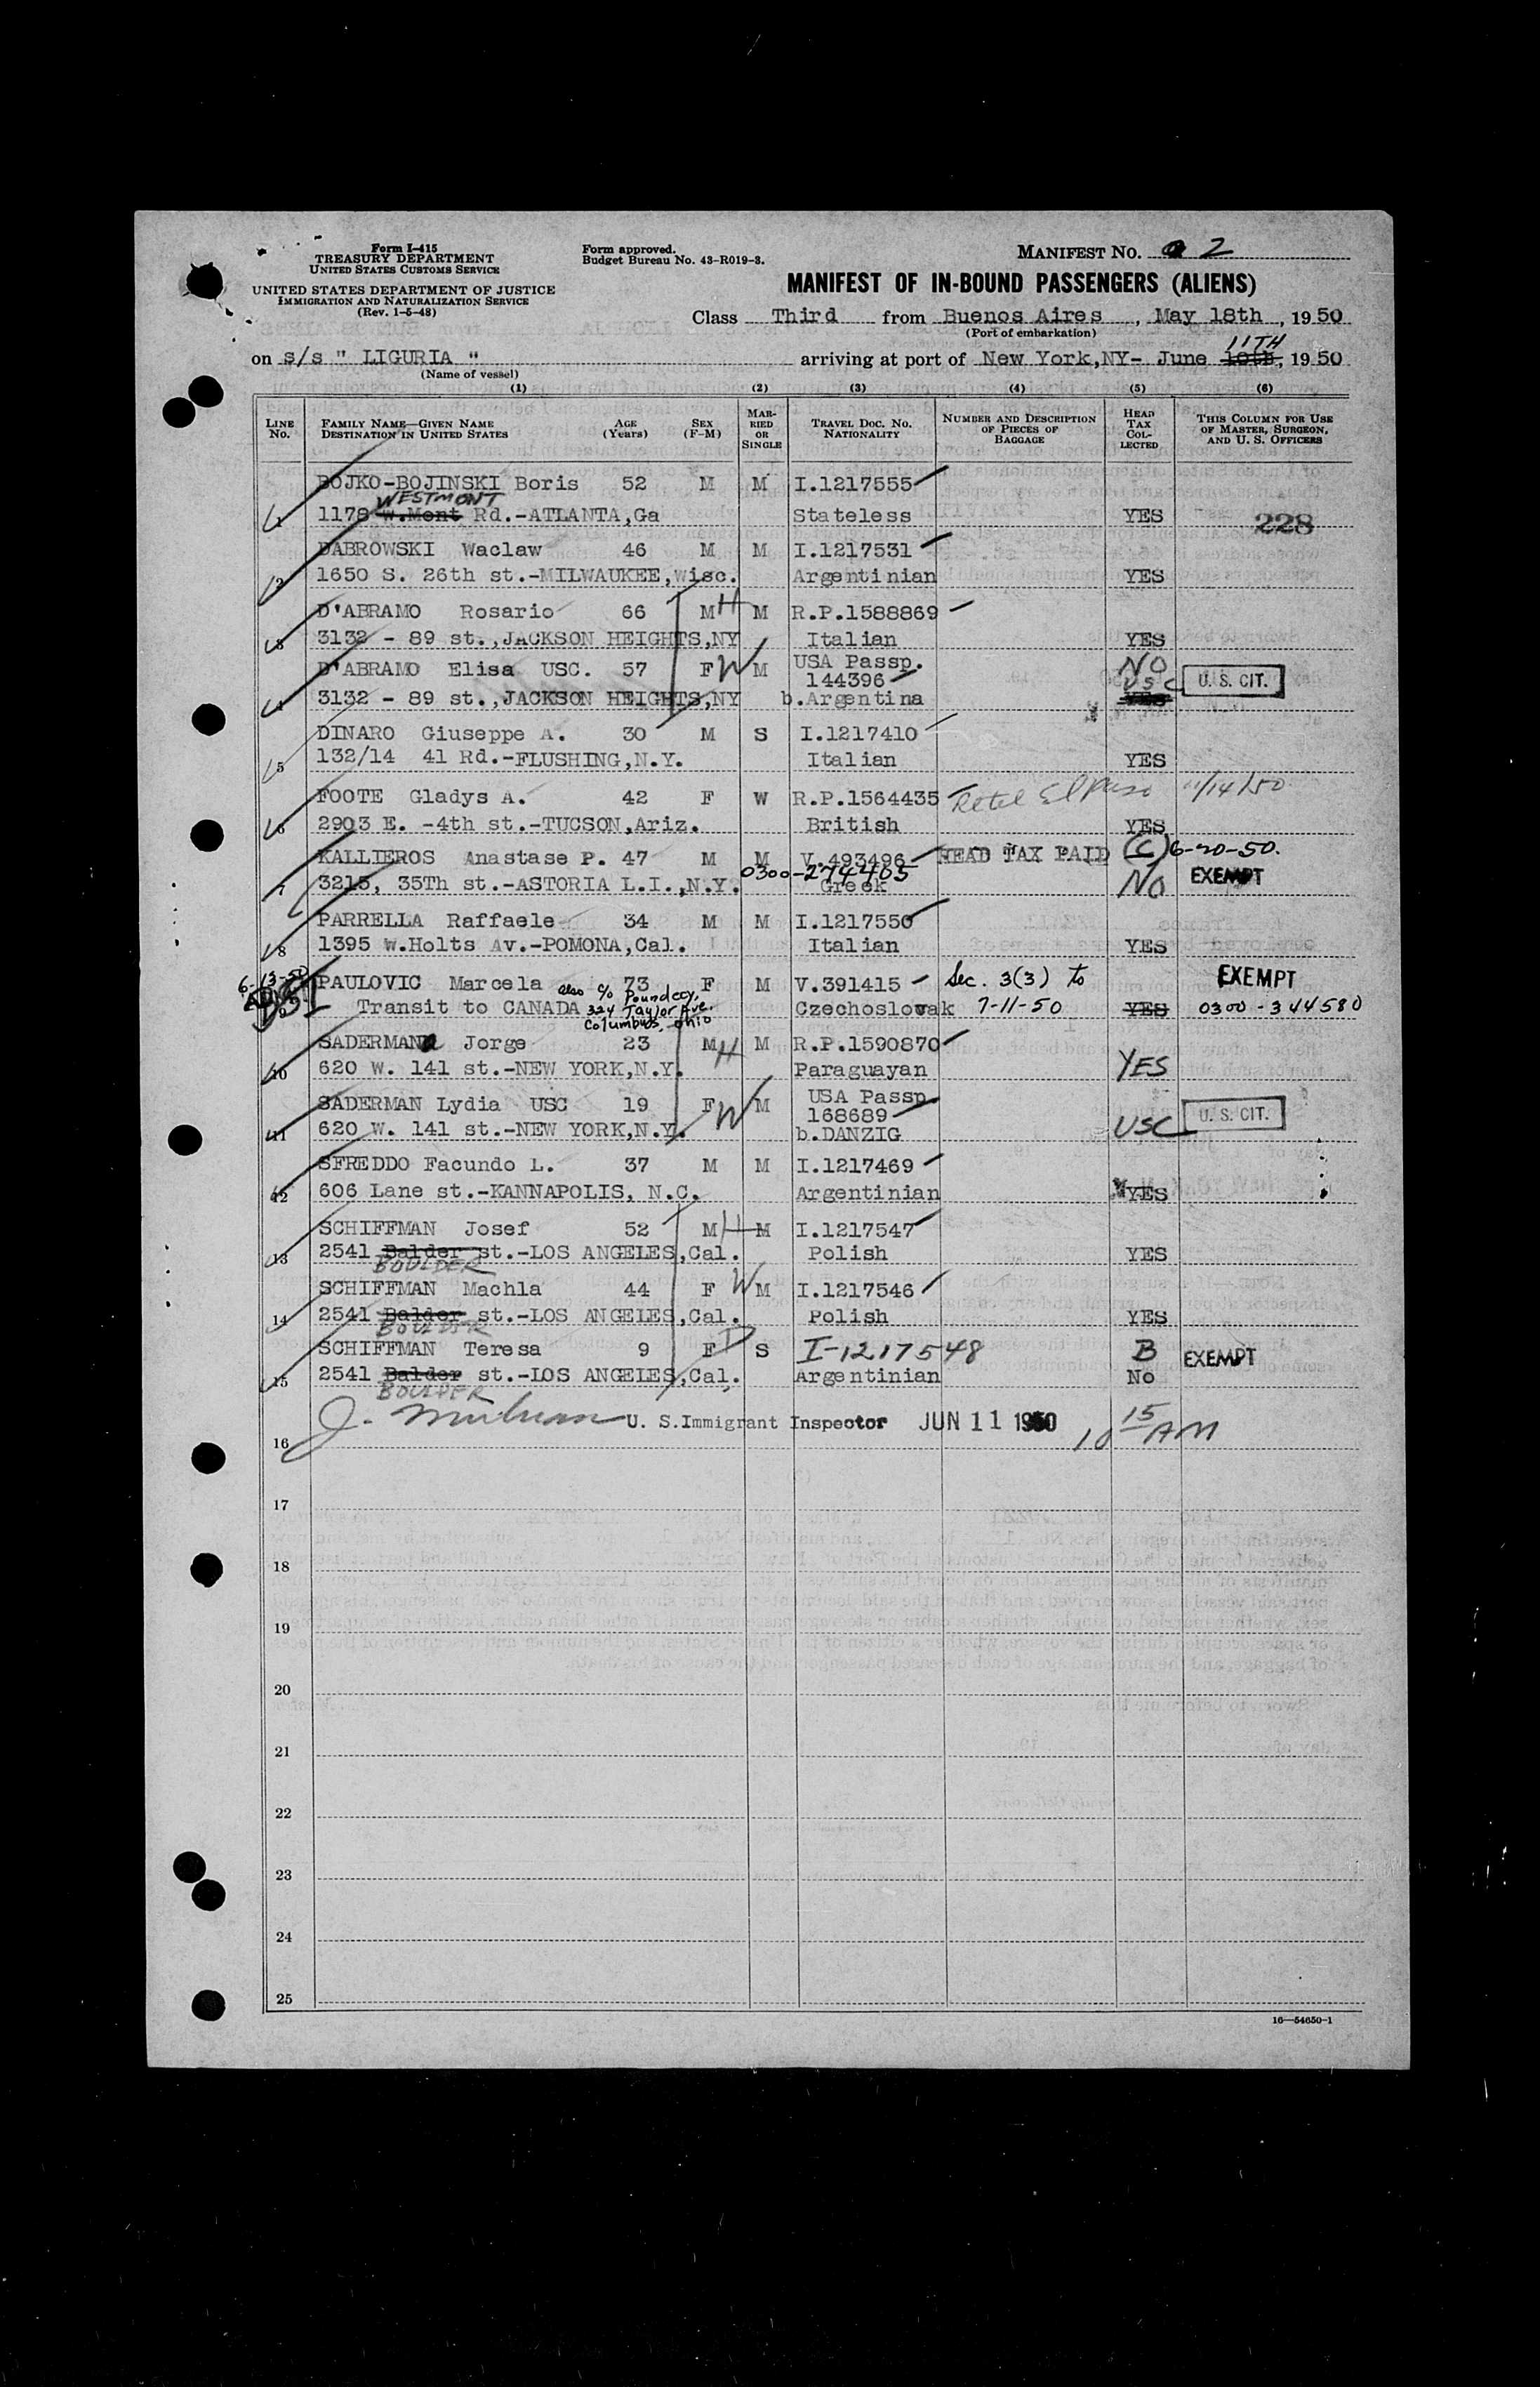 Form I-415
TREASURY DEPARTMENT
UNITED STATES CUSTOMS SERVICE
UNITED STATES DEPARTMENT OF JUSTICE
IMMIGRATION AND NATURALIZATION SERVICE
(Rev. 1-5-48)
Form approved.
Budget Bureau No. 43-R019-3.
MANIFEST NO. 2
MANIFEST OF IN-BOUND PASSENGERS (ALIENS)
Class Third from Buenos Aires, May 18th, 1950
(Port of embarkation)
11TH
on s/s " LIGURIA " arriving at port of New York,NY- June 10th, 1950
(Name of vessel)
(1) (2) (3) (4) (5) (6)
LINE NO. FAMILY NAME—GIVEN NAME DESTINATION IN UNITED STATES AGE (Years) SEX (F-M) MARRIED OR SINGLE TRAVEL DOC. NO. NATIONALITY NUMBER AND DESCRIPTION OF PIECES OF BAGGAGE HEAD TAX COLLECTED THIS COLUMN FOR USE OF MASTER, SURGEON, AND U. S. OFFICERS
BOJKO-BOJINSKI Boris 52 M M I.1217555
WESTMONT
1 1178 W.Mont Rd.-ATLANTA,Ga Stateless YES 228
DABROWSKI Waclaw 46 M M I.1217531
2 1650 S. 26th st.-MILWAUKEE,Wisc. Argentinian YES
D'ABRAMO Rosario 66 M H M R.P.1588869
3 3132 - 89 st.,JACKSON HEIGHTS,NY Italian YES
D'ABRAMO Elisa USC. 57 F W M USA Passp. 144396 NO USC U. S. CIT.
4 3132 - 89 st.,JACKSON HEIGHTS,NY b.Argentina YES
DINARO Giuseppe A. 30 M S I.1217410
5 132/14 41 Rd.-FLUSHING,N.Y. Italian YES
FOOTE Gladys A. 42 F W R.P.1564435 El Paso 11/14/50
6 2903 E. -4th st.-TUCSON,Ariz. British YES
KALLIEROS Anastase P. 47 M M V.493496 HEAD TAX PAID (C) 6-20-50.
0300-274405
7 3215, 35Th st.-ASTORIA L.I.,N.Y. Greek NO EXEMPT
PARRELLA Raffaele 34 M M I.1217550
8 1395 W.Holts Av.-POMONA,Cal. Italian YES
6-13-50
PAULOVIC Marcela 73 F M V.391415 Sec. 3(3) to EXEMPT
also c/o
9 Transit to CANADA 324 Taylor Ave. Columbus, Ohio Czechoslovak 7-11-50 YES 0300-344580
SADERMAN Jorge 23 M H M R.P.1590870
10 620 W. 141 st.-NEW YORK,N.Y. Paraguayan YES
SADERMAN Lydia USC 19 F W M USA Passp. 168689 U. S. CIT.
11 620 W. 141 st.-NEW YORK,N.Y. b.DANZIG USC
SFREDDO Facundo L. 37 M M I.1217469
12 606 Lane st.-KANNAPOLIS, N.C. Argentinian YES
SCHIFFMAN Josef 52 M H M I.1217547
13 2541 Balder st.-LOS ANGELES,Cal. Polish YES
BOULDER
SCHIFFMAN Machla 44 F W M I.1217546
14 2541 Balder st.-LOS ANGELES,Cal. Polish YES
BOULDER
SCHIFFMAN Teresa 9 F D S I-1217548 B EXEMPT
15 2541 Balder st.-LOS ANGELES,Cal. Argentinian No
BOULDER
J. U. S.Immigrant Inspector JUN 11 1950 10 15 AM
16
17
18
19
20
21
22
23
24
25
16—54650-1